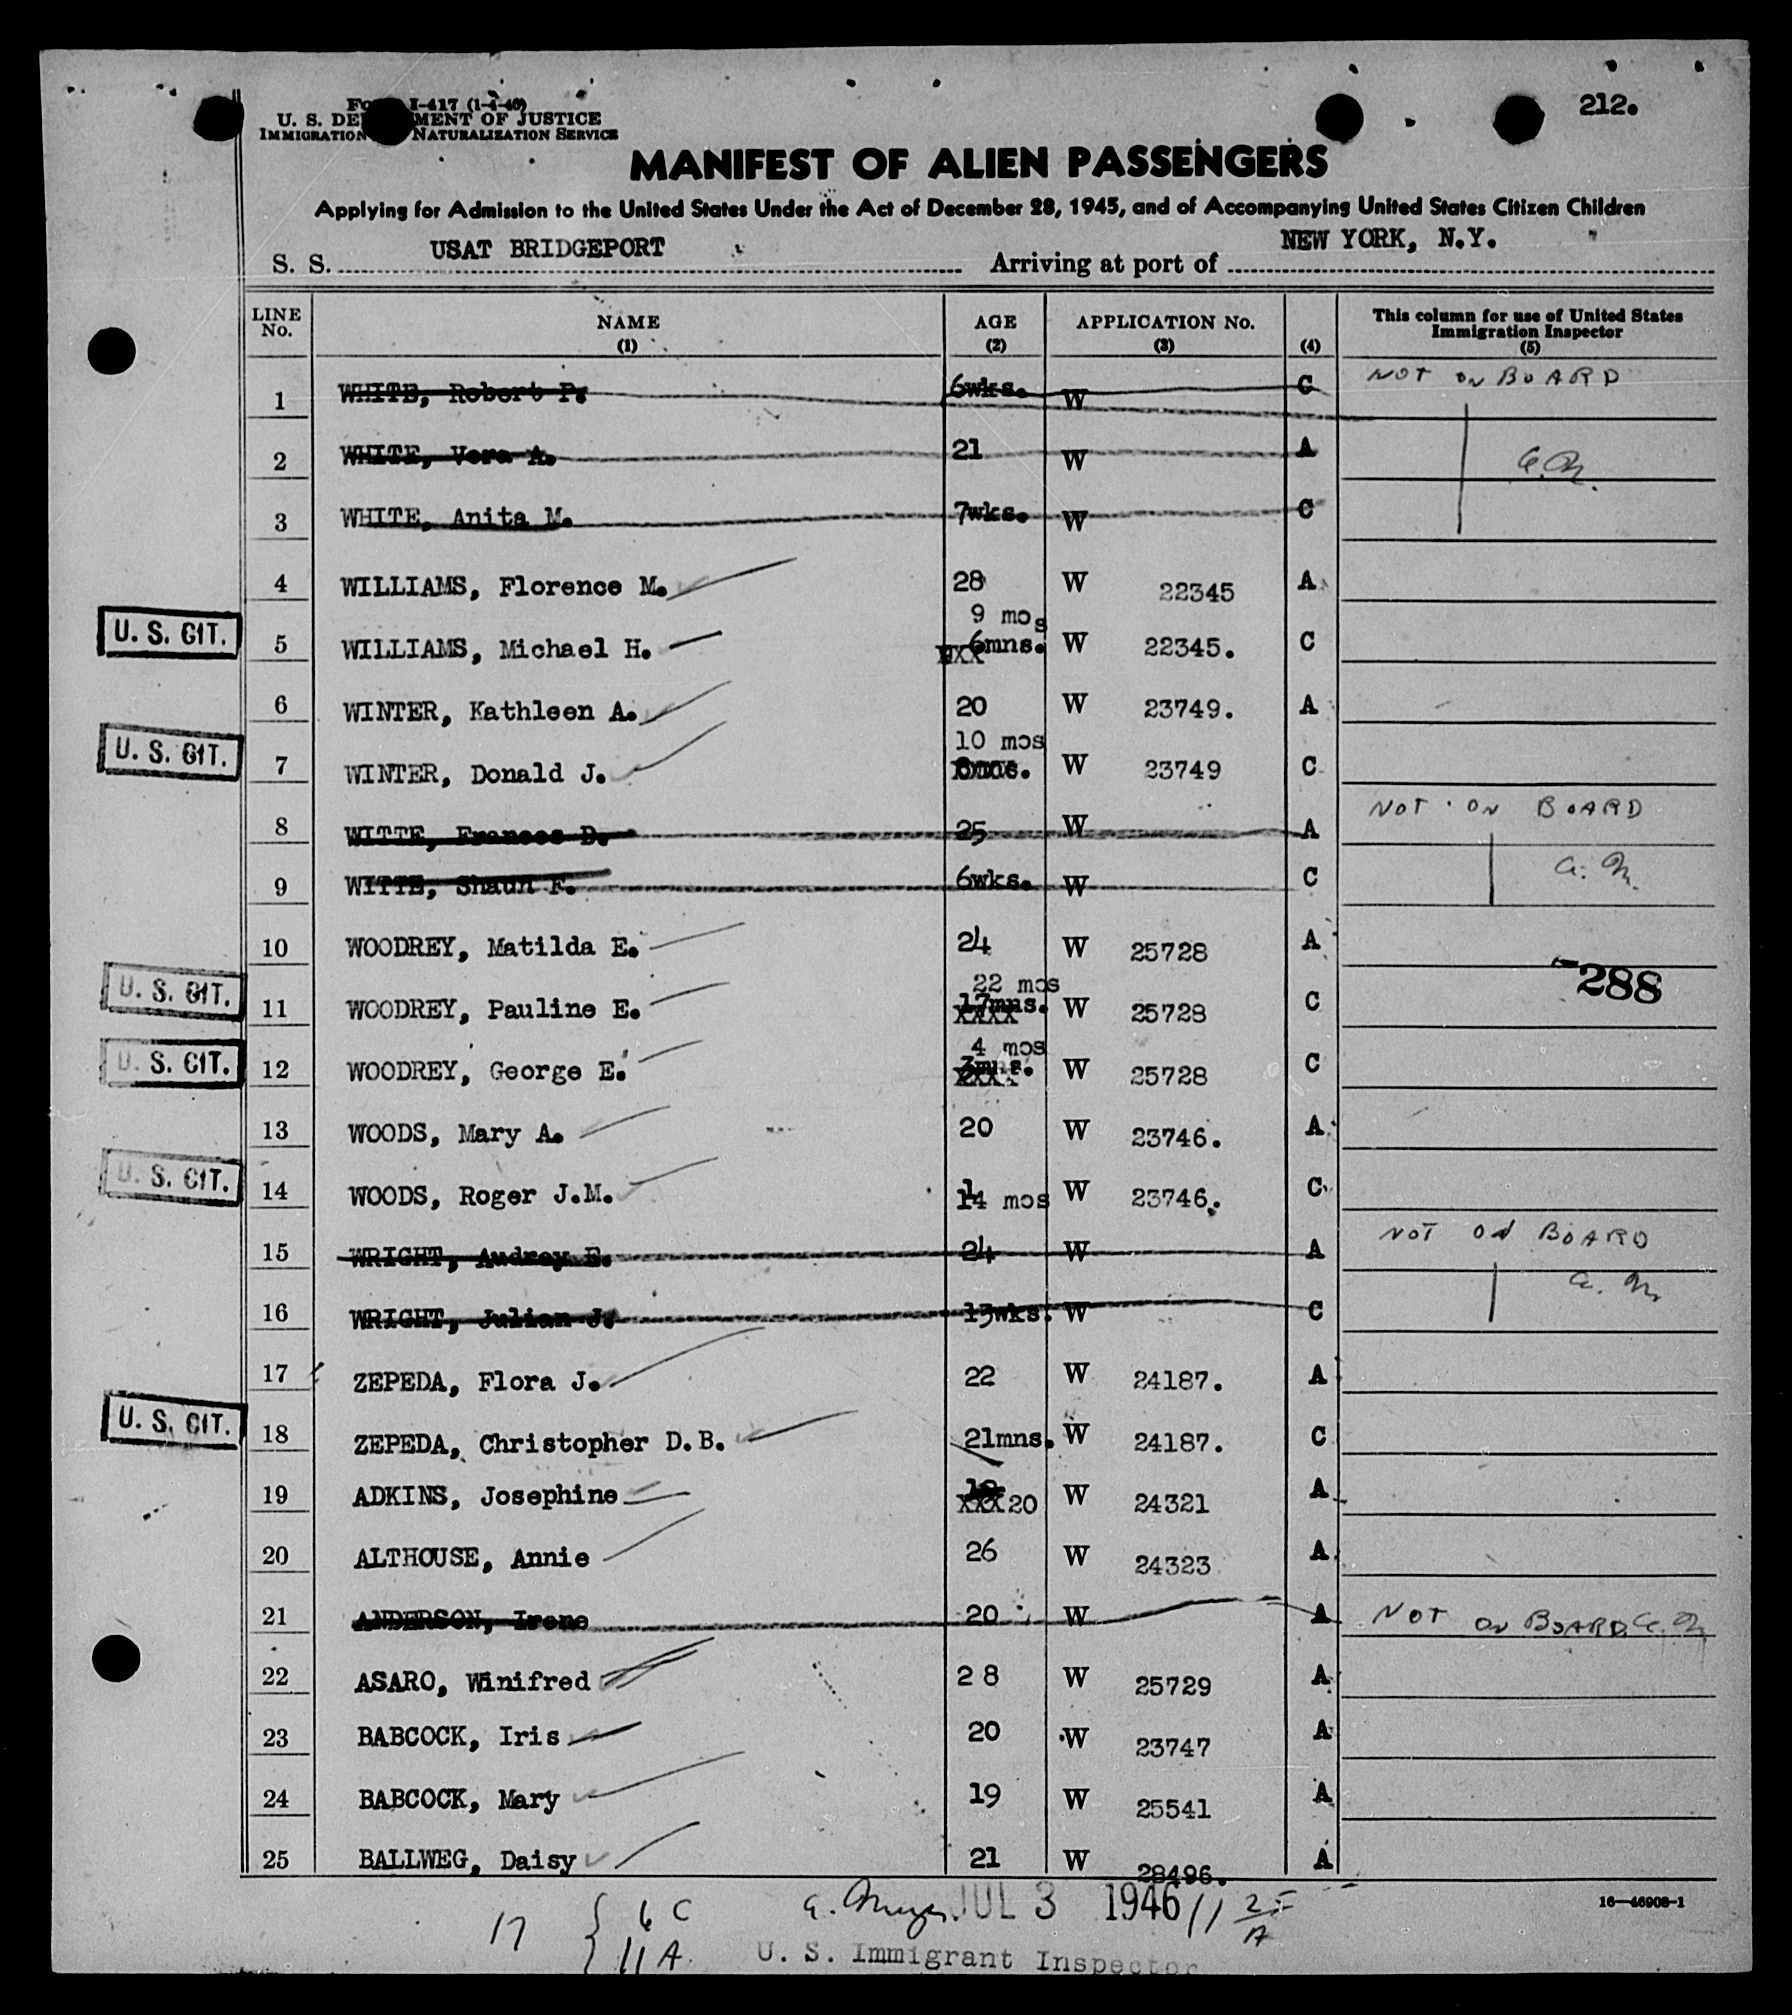 212.
I-417 (1-4-46)
U. S. DE MENT OF JUSTICE
IMMIGRATION NATURALIZATION SERVICE
MANIFEST OF ALIEN PASSENGERS
Applying for Admission to the United States Under the Act of December 28, 1945, and of Accompanying United States Citizen Children
S. S. USAT BRIDGEPORT Arriving at port of NEW YORK, N.Y.
LINE No. NAME (1) AGE (2) APPLICATION No. (3) (4) This column for use of United States Immigration Inspector (5)
1 WHITE, Robert P. 6wks. W C NOT ON BOARD
2 WHITE, Vera A. 21 W A
3 WHITE, Anita M. 7wks. W C
4 WILLIAMS, Florence M. 28 W 22345 A
9 mos
U. S. CIT. 5 WILLIAMS, Michael H. 6mns. W 22345. C
6 WINTER, Kathleen A. 20 W 23749. A
10 mos
U. S. CIT. 7 WINTER, Donald J. W 23749 C
8 WITTE, Frances D. 25 W A NOT ON BOARD
9 WITTE, Shaun F. 6wks. W C A. M.
10 WOODREY, Matilda E. 24 W 25728 A
288
22 mos
U. S. CIT. 11 WOODREY, Pauline E. 17mns. W 25728 C
4 mos
U. S. CIT. 12 WOODREY, George E. 3mns. W 25728 C
13 WOODS, Mary A. 20 W 23746. A
U. S. CIT. 14 WOODS, Roger J.M. 14 mos W 23746. C
15 WRIGHT, Audrey E. 24 W A NOT ON BOARD
16 WRIGHT, Julian J. 13wks. W C A. M.
17 ZEPEDA, Flora J. 22 W 24187. A
U. S. CIT. 18 ZEPEDA, Christopher D.B. 21mns. W 24187. C
19 ADKINS, Josephine XXX 20 W 24321 A
20 ALTHOUSE, Annie 26 W 24323 A
21 ANDERSON, Irene 20 W A NOT ON BOARD A. M
22 ASARO, Winifred 28 W 25729 A
23 BABCOCK, Iris 20 W 23747 A
24 BABCOCK, Mary 19 W 25541 A
25 BALLWEG, Daisy 21 W 28496. A
16—46908-1
17 { 6 C JUL 3 1946
11 A
U. S. Immigrant Inspector